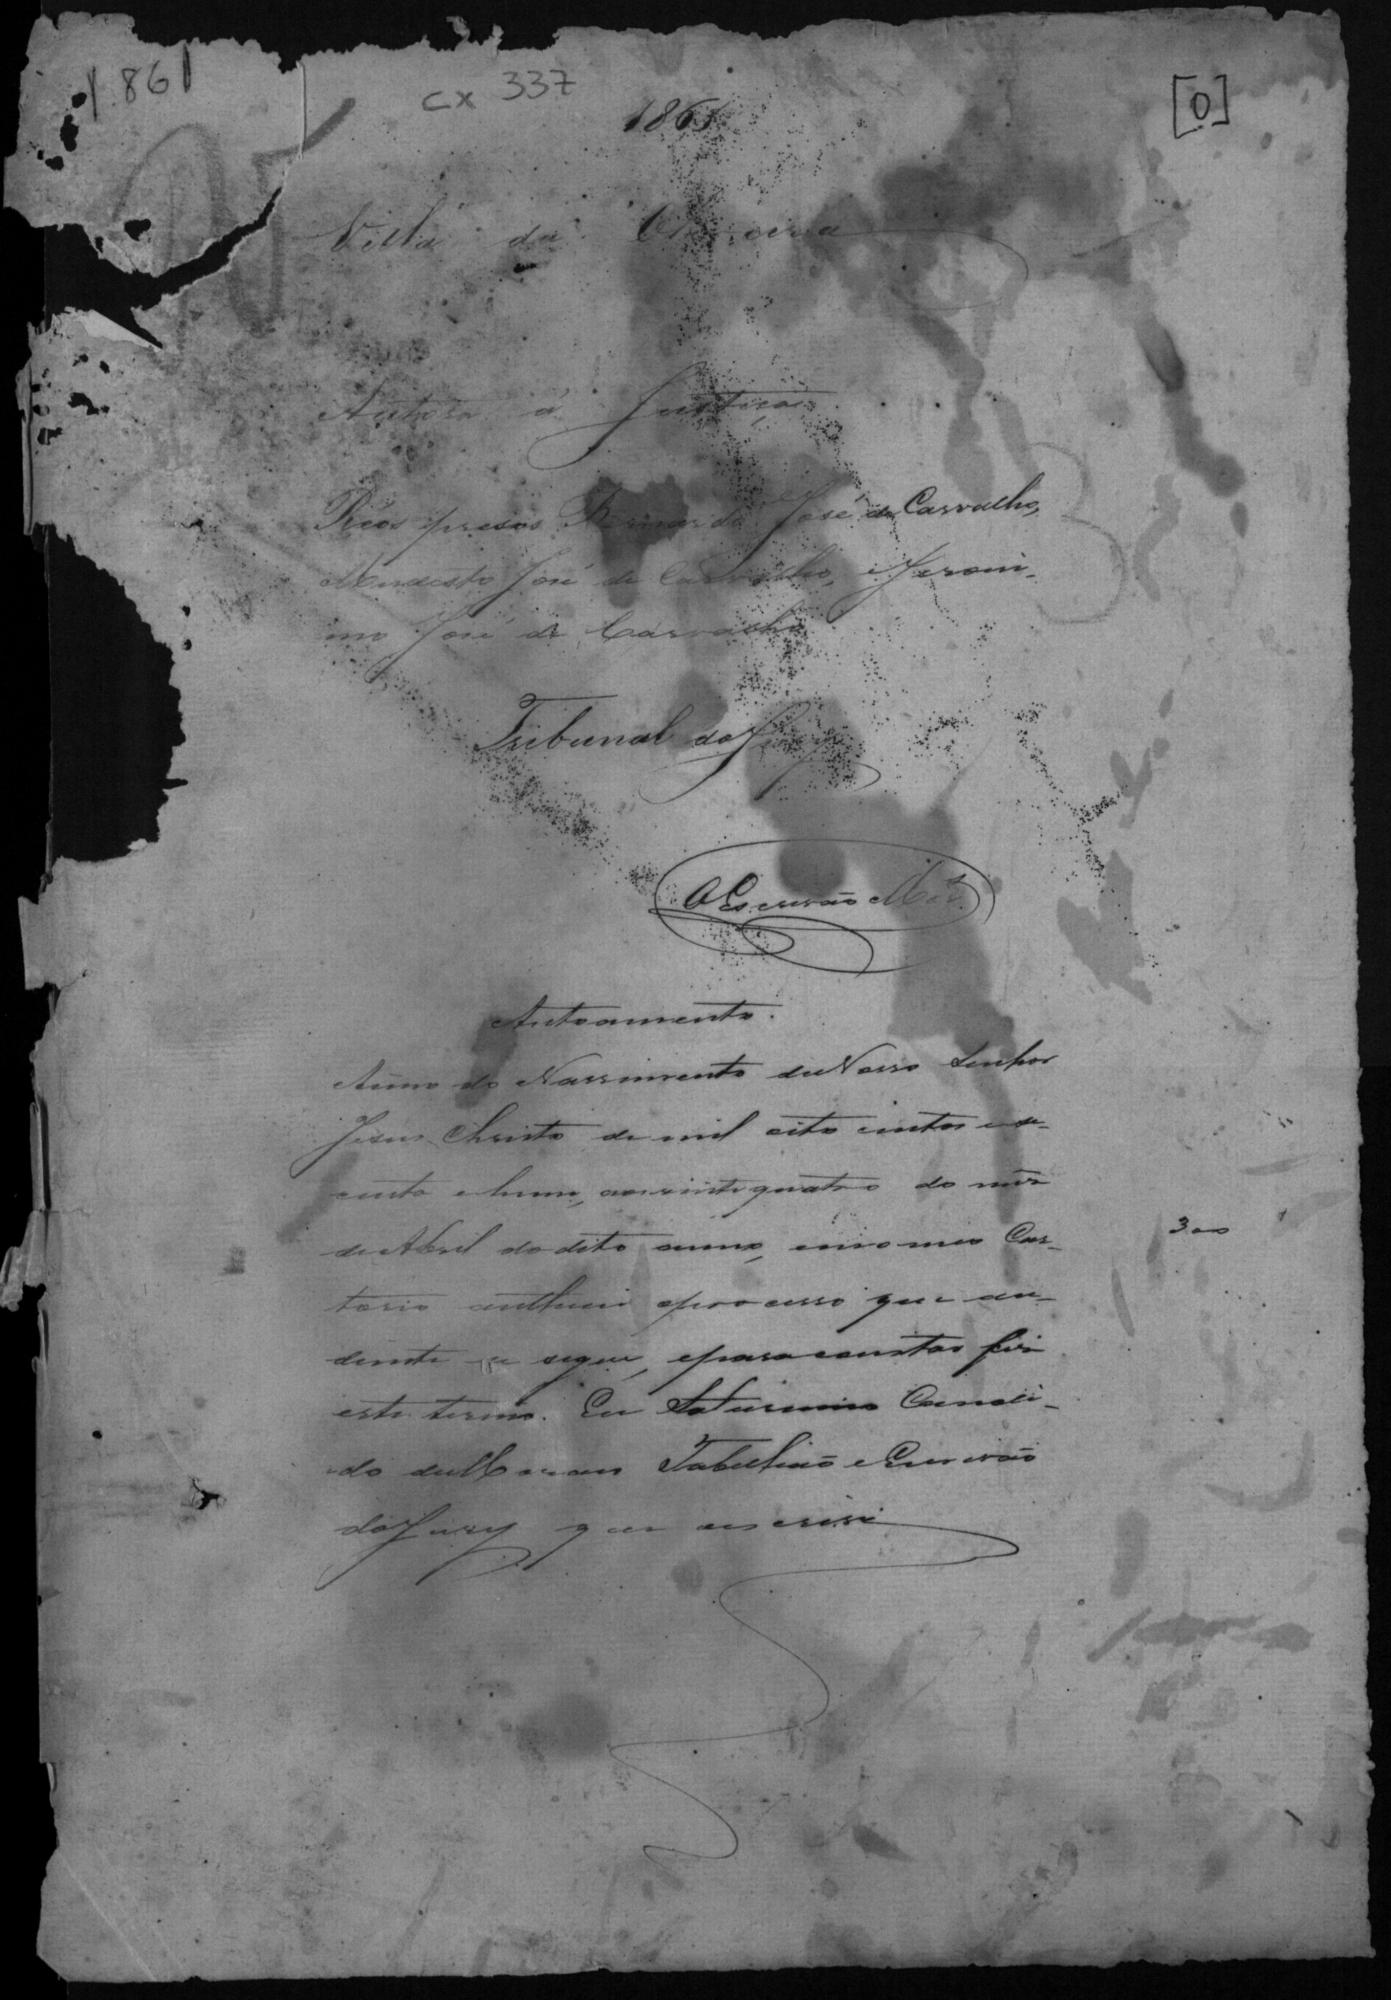 1861
cx 337
[0]
1861
Villa da
Autora a Justiça
Réos presos Bernardo José de Carvalho,
Modesto José de Carvalho, e Jeroni-
mo José de Carvalho
Tribunal do Jury
O Escrivão
Autoamento.
Anno do Nassimento de Nosso Senhor
Jesus Christo de mil oito centos e se-
centa e hum, aos vinte quatro do mês
de Abril do dito anno, em o meu Car-
300
torio authuei o processo que a-
diante se segue, e para constar fis
este termo. Eu Saturnino Candi-
do de Moraes Tabellião e Escrivão
do Jury que escrevi